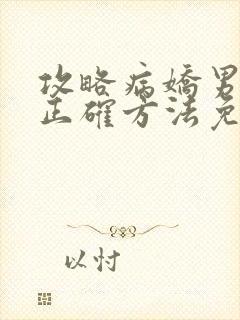 攻略病嬌男
正確方法免
以忖